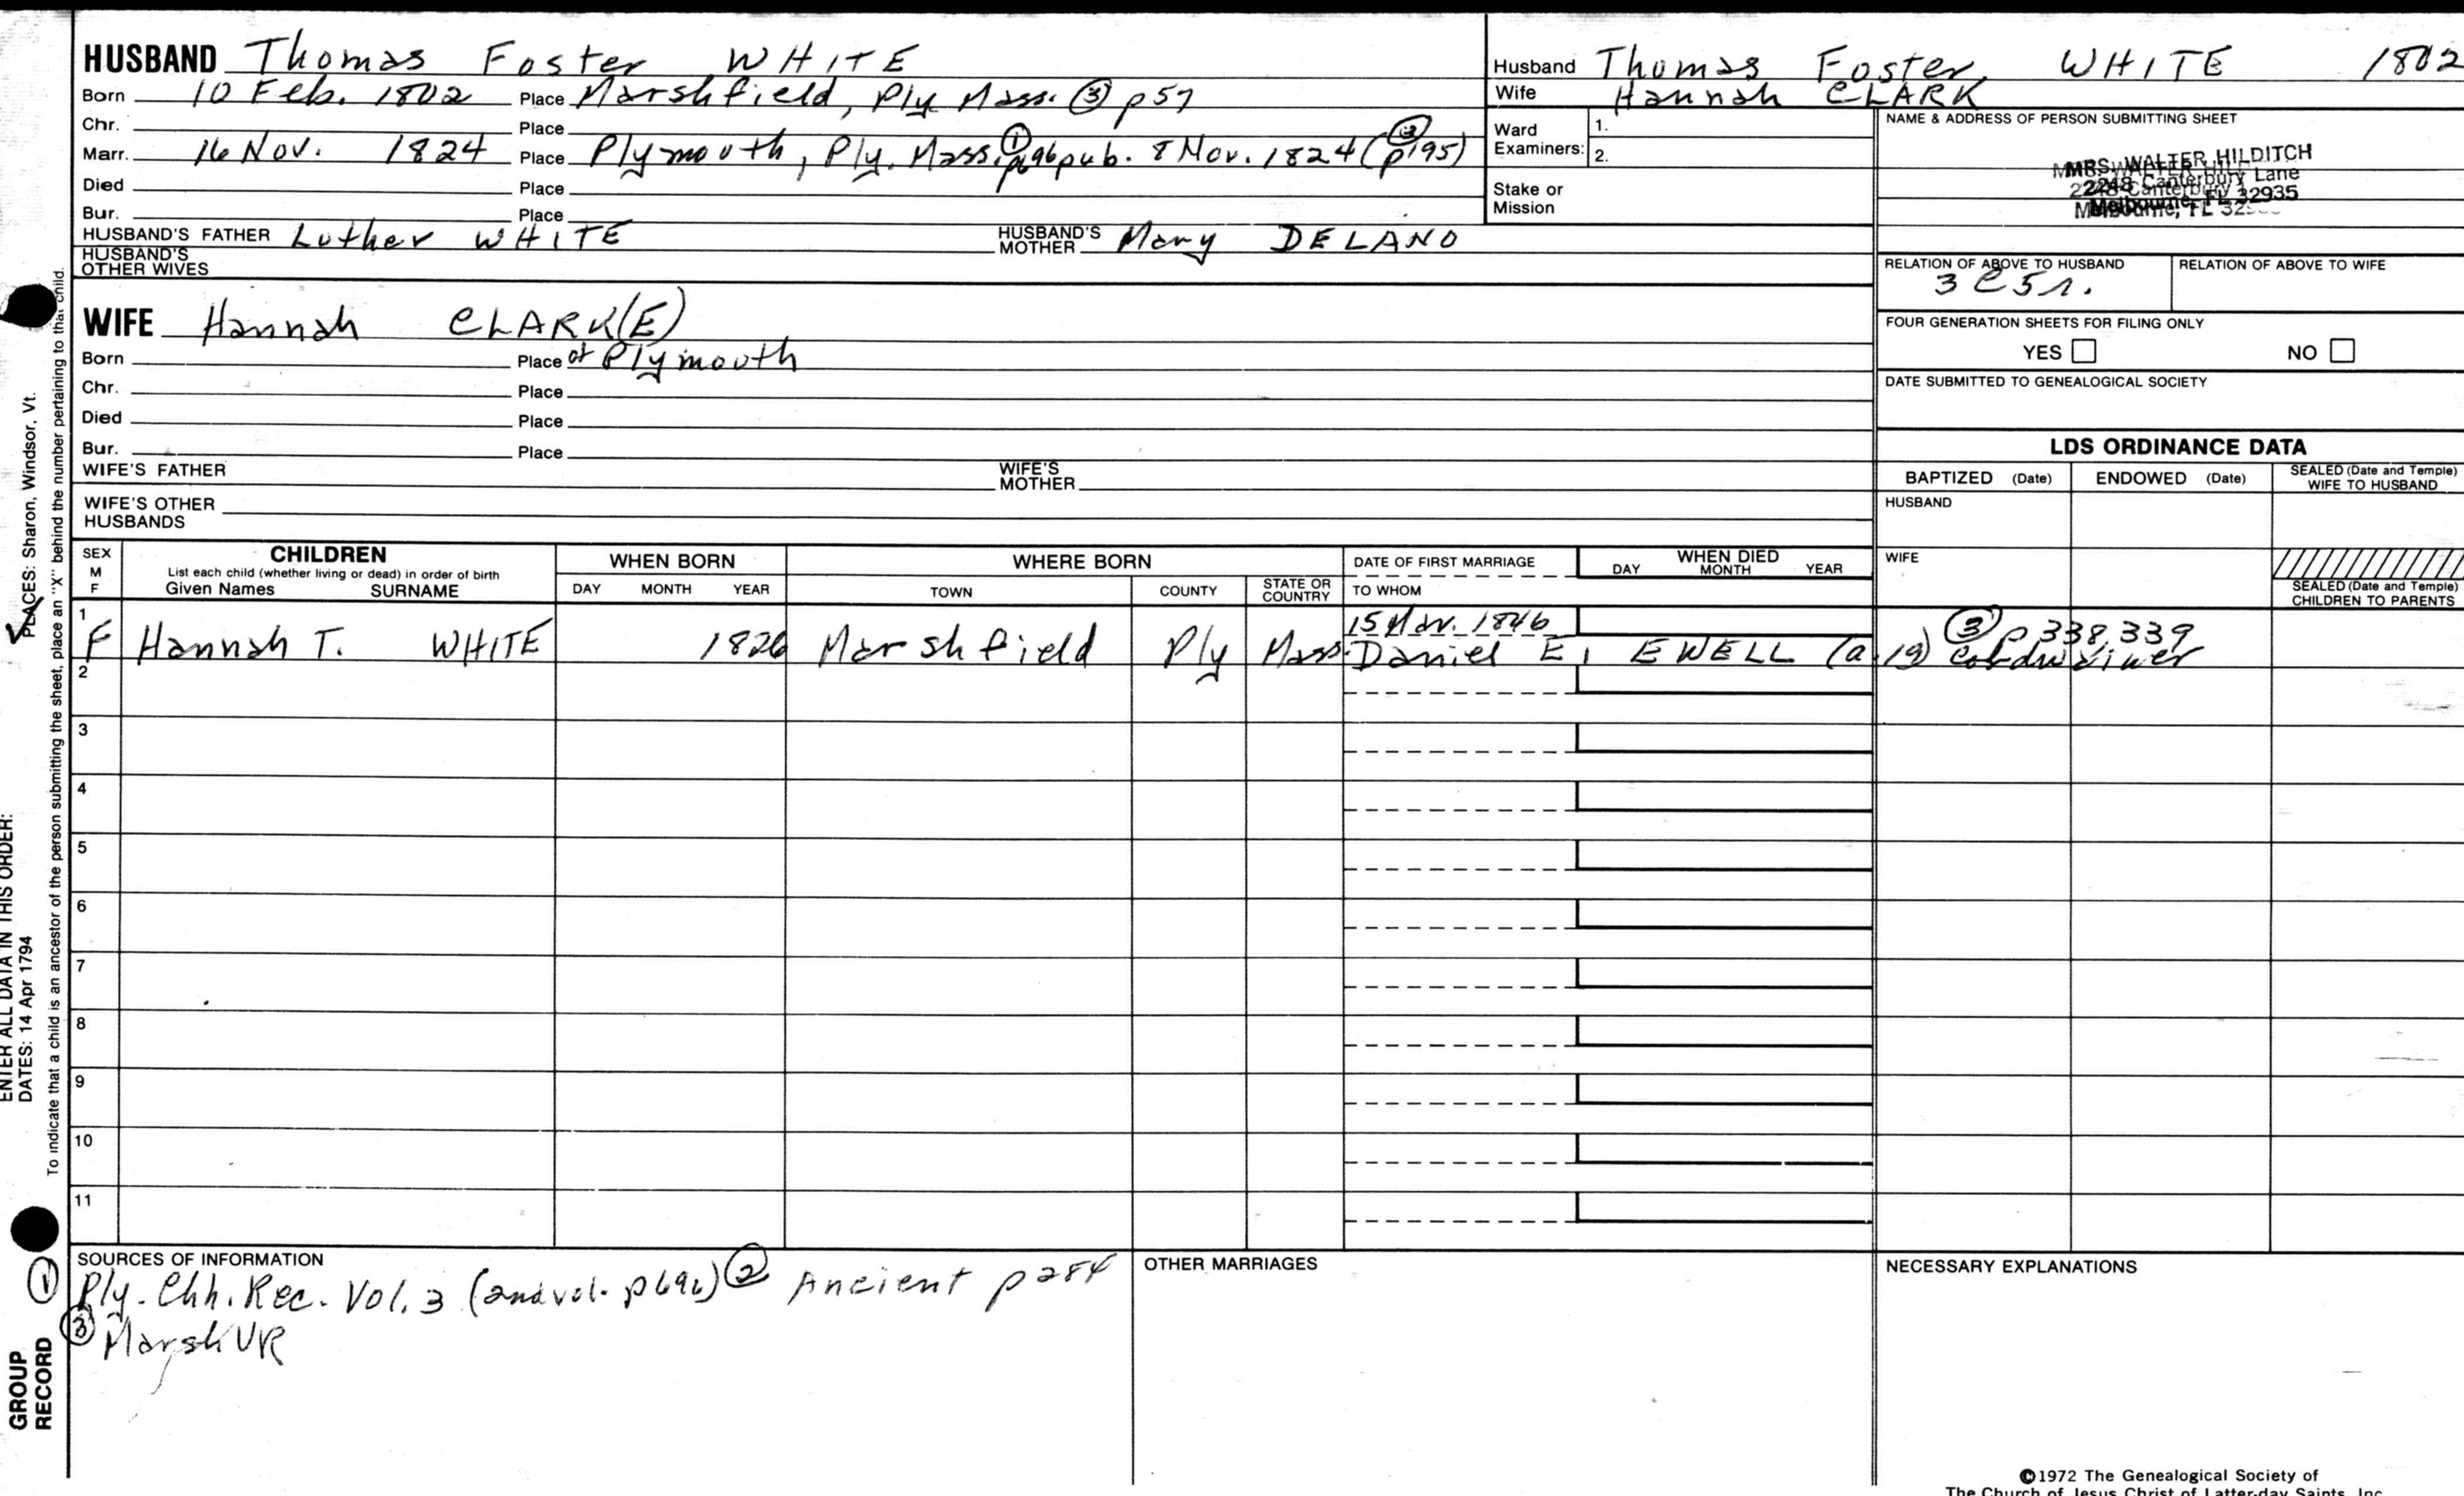 HUSBAND Thomas Foster WHITE
Born 10 Feb. 1802 Place Marshfield, Ply Mass. ③ p57
Chr. Place
Marr. 16 Nov. 1824 Place Plymouth, Ply. Mass. ① p696 pub. 8 Nov. 1824 (③ p195)
Died Place
Bur. Place
HUSBAND'S FATHER Luther WHITE HUSBAND'S MOTHER Mary DELANO
HUSBAND'S OTHER WIVES
WIFE Hannah CLARK(E)
Born Place of Plymouth
Chr. Place
Died Place
Bur. Place
WIFE'S FATHER WIFE'S MOTHER
WIFE'S OTHER HUSBANDS
Husband Thomas Foster WHITE 1802
Wife Hannah CLARK
Ward Examiners: 1. 2.
Stake or Mission
NAME & ADDRESS OF PERSON SUBMITTING SHEET
MRS. WALTER HILDITCH
2248 Canterbury Lane
Melbourne, FL 32935
RELATION OF ABOVE TO HUSBAND RELATION OF ABOVE TO WIFE
3C5r.
FOUR GENERATION SHEETS FOR FILING ONLY
YES NO
DATE SUBMITTED TO GENEALOGICAL SOCIETY
LDS ORDINANCE DATA
BAPTIZED (Date) ENDOWED (Date) SEALED (Date and Temple) WIFE TO HUSBAND
HUSBAND
WIFE
SEALED (Date and Temple) CHILDREN TO PARENTS
SEX M F
CHILDREN
List each child (whether living or dead) in order of birth
Given Names SURNAME
WHEN BORN
DAY MONTH YEAR
WHERE BORN
TOWN COUNTY STATE OR COUNTRY
DATE OF FIRST MARRIAGE
TO WHOM
WHEN DIED
DAY MONTH YEAR
1 15 Mar. 1846 ③ p 338, 339
F Hannah T. WHITE 1826 Marshfield Ply Mass. Daniel E. EWELL (a.19) cordwainer
2
3
4
5
6
7
8
9
10
11
SOURCES OF INFORMATION
① Ply. Chh. Rec. Vol. 3 (2nd vol. p696) ② Ancient p 284
③ Marsh VR
OTHER MARRIAGES
NECESSARY EXPLANATIONS
©1972 The Genealogical Society of
The Church of Jesus Christ of Latter-day Saints, Inc.
ENTER ALL DATA IN THIS ORDER:
DATES: 14 Apr 1794
PLACES: Sharon, Windsor, Vt.
To indicate that a child is an ancestor of the person submitting the sheet, place an "X" behind the number pertaining to that child.
GROUP
RECORD